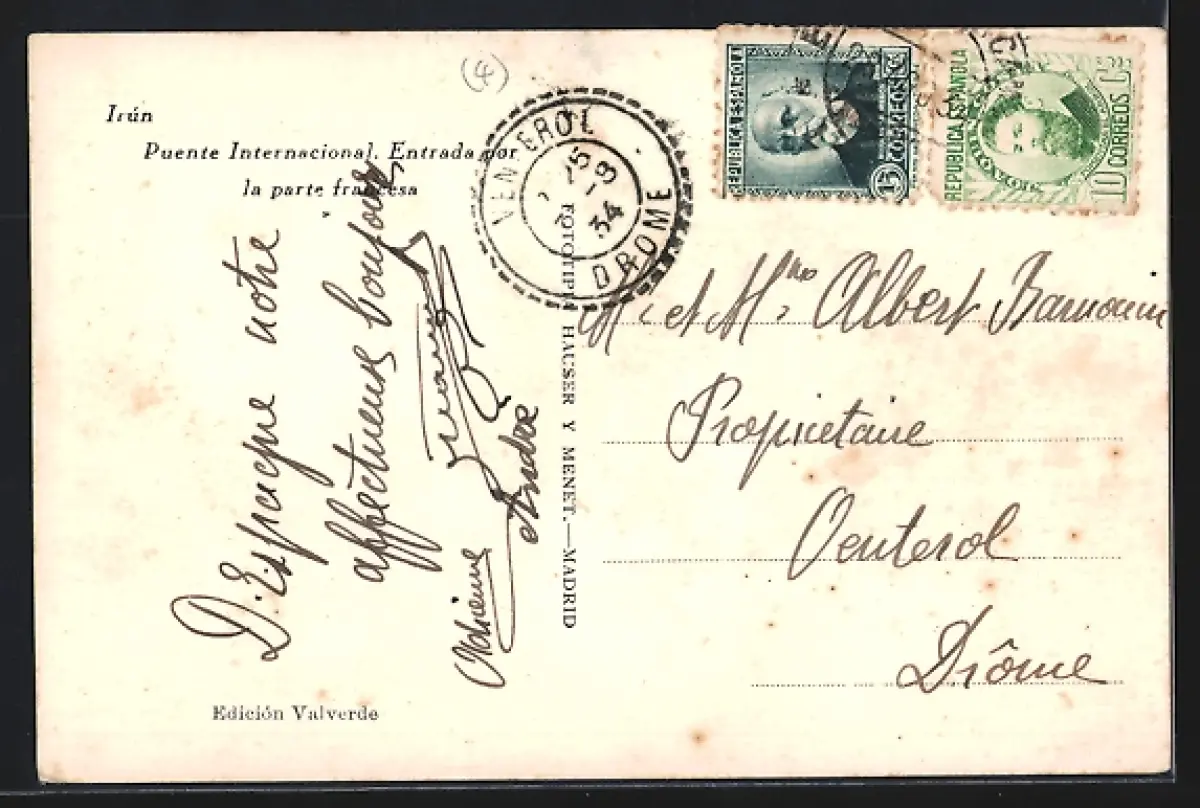 Irún
Puente Internacional. Entrada por
la parte francesa
D'Espagne notre
affectueux bonjour
Adrienne
André
Edición Valverde
FOTOTIPIA HAUSER Y MENET.—MADRID
VENTEROL
15
-9
34
DROME
REPUBLICA ESPAÑOLA
15 CTS
CORREOS
REPUBLICA ESPAÑOLA
10 CTS
CORREOS
Mr et Mme Albert
Propriétaire
Venterol
Drôme